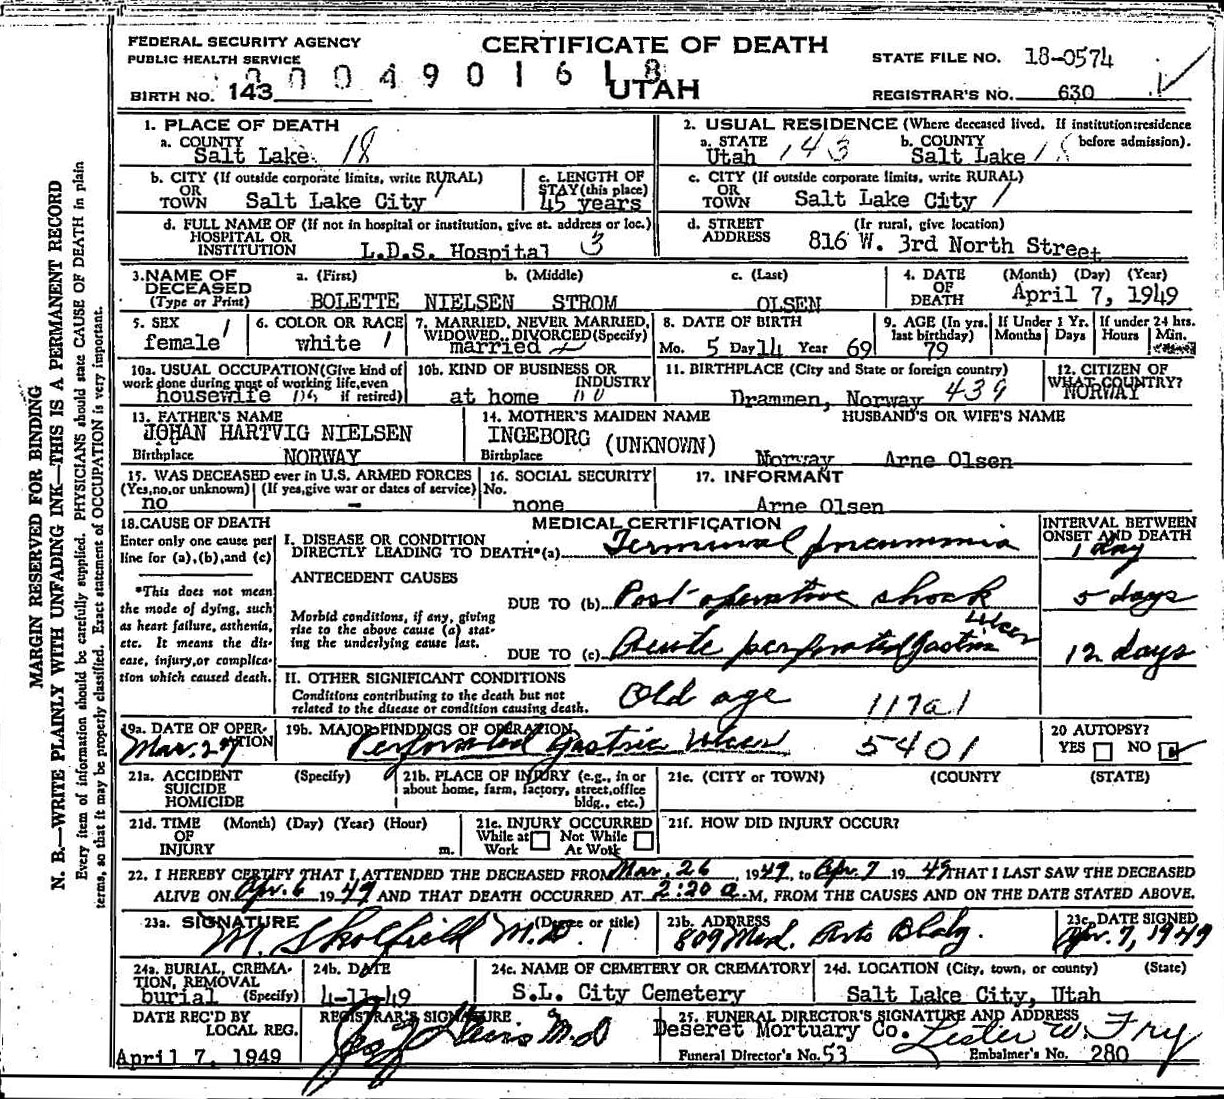 FEDERAL SECURITY AGENCY
PUBLIC HEALTH SERVICE
CERTIFICATE OF DEATH
STATE FILE NO. 18-0574
000490161 8
BIRTH NO. 143
UTAH
REGISTRAR'S NO. 630
1. PLACE OF DEATH
a. COUNTY
Salt Lake 18
2. USUAL RESIDENCE (Where deceased lived. If institution:residence before admission).
a. STATE b. COUNTY
Utah 143 Salt Lake
b. CITY (If outside corporate limits, write RURAL)
OR
TOWN Salt Lake City
c. LENGTH OF
STAY (this place)
45 years
c. CITY (If outside corporate limits, write RURAL)
OR
TOWN Salt Lake City
d. FULL NAME OF (If not in hospital or institution, give st. address or loc.)
HOSPITAL OR
INSTITUTION L.D.S. Hospital 3
d. STREET (If rural, give location)
ADDRESS 816 W. 3rd North Street
3. NAME OF
DECEASED
(Type or Print)
a. (First) b. (Middle) c. (Last)
BOLETTE NIELSEN STROM OLSEN
4. DATE (Month) (Day) (Year)
OF
DEATH April 7, 1949
5. SEX
female
6. COLOR OR RACE
white
7. MARRIED, NEVER MARRIED,
WIDOWED, DIVORCED (Specify)
married
8. DATE OF BIRTH
Mo. 5 Day 14 Year 69
9. AGE (In yrs.
last birthday)
79
If Under 1 Yr.
Months Days
If under 24 hrs.
Hours Min.
10a. USUAL OCCUPATION (Give kind of
work done during most of working life, even
housewife if retired)
10b. KIND OF BUSINESS OR
INDUSTRY
at home
11. BIRTHPLACE (City and State or foreign country)
Drammen, Norway 439
12. CITIZEN OF
WHAT COUNTRY?
NORWAY
13. FATHER'S NAME
JOHAN HARTVIG NIELSEN
Birthplace NORWAY
14. MOTHER'S MAIDEN NAME
INGEBORG (UNKNOWN)
Birthplace Norway
HUSBAND'S OR WIFE'S NAME
Arne Olsen
15. WAS DECEASED ever in U.S. ARMED FORCES
(Yes, no, or unknown) (If yes, give war or dates of service)
no -
16. SOCIAL SECURITY
No.
none
17. INFORMANT
Arne Olsen
18. CAUSE OF DEATH
Enter only one cause per
line for (a), (b), and (c)
*This does not mean
the mode of dying, such
as heart failure, asthenia,
etc. It means the dis-
ease, injury, or complica-
tion which caused death.
MEDICAL CERTIFICATION
INTERVAL BETWEEN
ONSET AND DEATH
I. DISEASE OR CONDITION
DIRECTLY LEADING TO DEATH*(a) Terminal pneumonia 1 day
ANTECEDENT CAUSES
DUE TO (b) Post-operative shock 5 days
Morbid conditions, if any, giving
rise to the above cause (a) stat-
ing the underlying cause last.
DUE TO (c) Acute perforated gastric ulcer 12 days
II. OTHER SIGNIFICANT CONDITIONS
Conditions contributing to the death but not
related to the disease or condition causing death.
Old age 117a1
19a. DATE OF OPER-
ATION
Mar. 27
19b. MAJOR FINDINGS OF OPERATION
Perforated Gastric Ulcer 5401
20 AUTOPSY?
YES NO
21a. ACCIDENT (Specify)
SUICIDE
HOMICIDE
21b. PLACE OF INJURY (e.g., in or
about home, farm, factory, street, office
bldg., etc.)
21c. (CITY or TOWN) (COUNTY) (STATE)
21d. TIME (Month) (Day) (Year) (Hour)
OF
INJURY m.
21e. INJURY OCCURRED
While at Not While
Work At Work
21f. HOW DID INJURY OCCUR?
22. I HEREBY CERTIFY THAT I ATTENDED THE DECEASED FROM Mar. 26, 1949, to Apr. 7 1949 THAT I LAST SAW THE DECEASED
ALIVE ON Apr. 6 1949 AND THAT DEATH OCCURRED AT 2:20 a.M, FROM THE CAUSES AND ON THE DATE STATED ABOVE.
23a. SIGNATURE (Degree or title)
M. Skolfield M.D.
23b. ADDRESS
809 Med. Arts Bldg.
23c. DATE SIGNED
Apr. 7, 1949
24a. BURIAL, CREMA-
TION, REMOVAL
burial (Specify)
24b. DATE
4-11-49
24c. NAME OF CEMETERY OR CREMATORY
S.L. City Cemetery
24d. LOCATION (City, town, or county) (State)
Salt Lake City, Utah
DATE REC'D BY
LOCAL REG.
April 7, 1949
REGISTRAR'S SIGNATURE
M.D
25. FUNERAL DIRECTOR'S SIGNATURE AND ADDRESS
Deseret Mortuary Co. Lester W. Fry
Funeral Director's No. 53 Embalmer's No. 280
MARGIN RESERVED FOR BINDING
N. B.—WRITE PLAINLY WITH UNFADING INK—THIS IS A PERMANENT RECORD
Every item of information should be carefully supplied. PHYSICIANS should state CAUSE OF DEATH in plain
terms, so that it may be properly classified. Exact statement of OCCUPATION is very important.